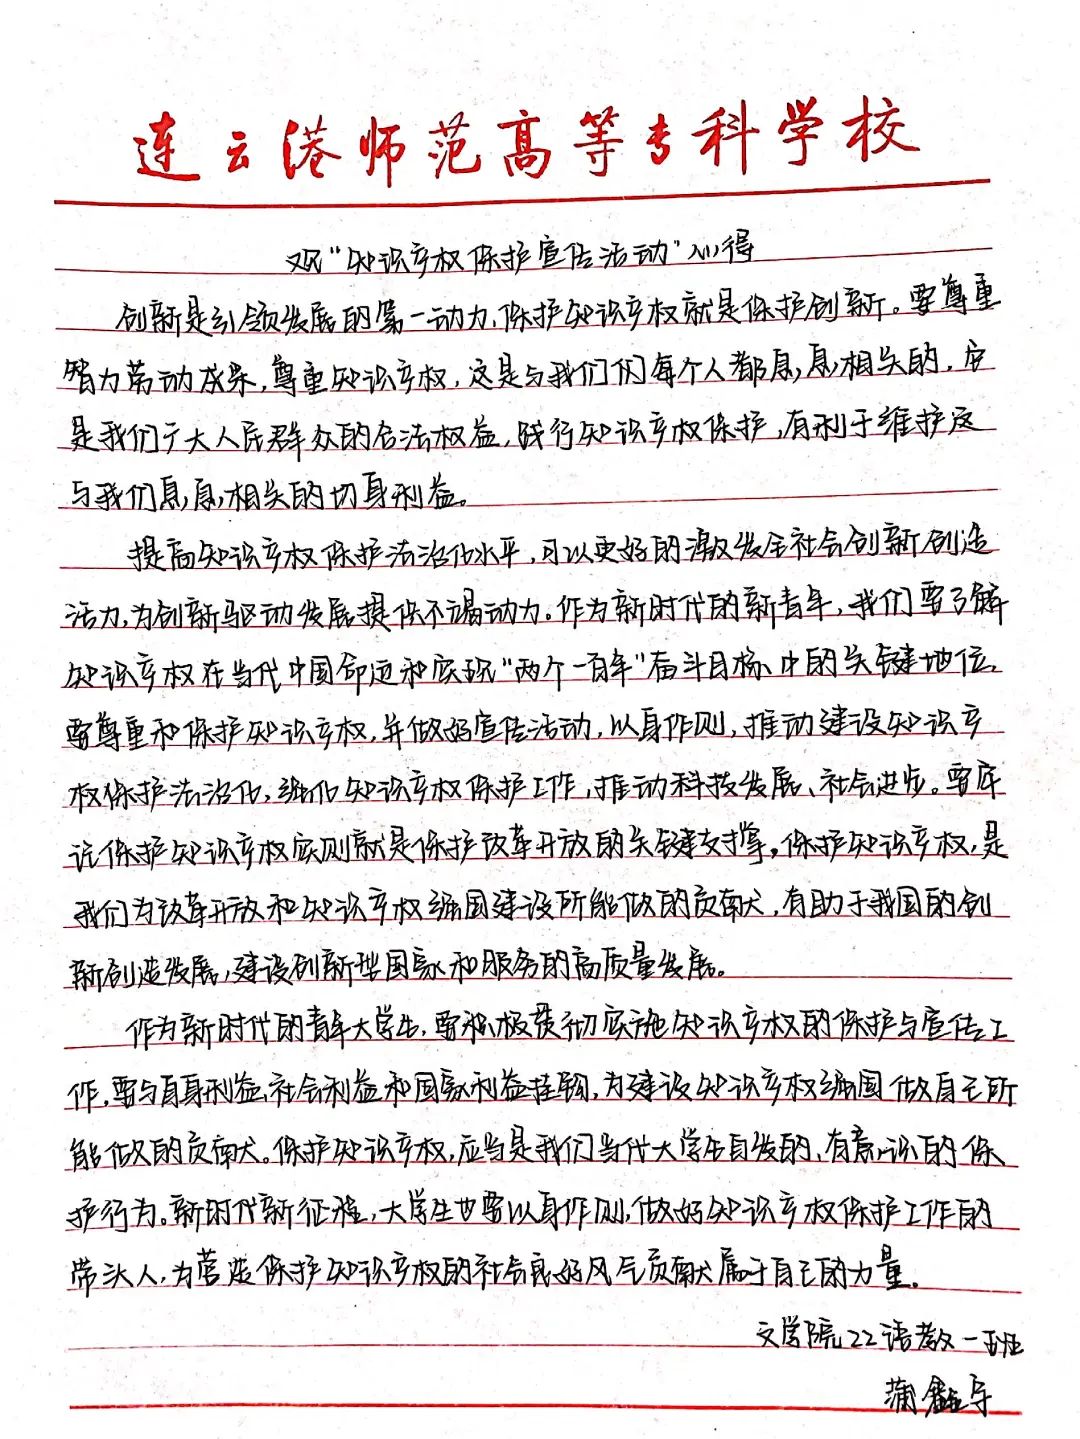 连云港师范高等专科学校
观“知识产权保护宣传活动”心得
创新是引领发展的第一动力,保护知识产权就是保护创新。要尊重
智力劳动成果,尊重知识产权,这是与我们每个人都息息相关的,它
是我们广大人民群众的合法权益,践行知识产权保护,有利于维护这
与我们息息相关的切身利益。
提高知识产权保护法治化水平,可以更好的激发全社会创新创造
活力,为创新驱动发展提供不竭动力。作为新时代的新青年,我们要了解
知识产权在当代中国命运和实现“两个一百年”奋斗目标中的关键地位。
要尊重和保护知识产权,并做好宣传活动,以身作则,推动建设知识产
权保护法治化,强化知识产权保护工作,推动科技发展、社会进步。要牢
记保护知识产权实则就是保护改革开放的关键支撑。保护知识产权,是
我们为改革开放和知识产权强国建设所能做的贡献,有助于我国的创
新创造发展,建设创新型国家和服务的高质量发展。
作为新时代的青年大学生,要积极贯彻实施知识产权的保护与宣传工
作,要与自身利益、社会利益和国家利益挂钩,为建设知识产权强国做自己所
能做的贡献。保护知识产权,应当是我们当代大学生自发的,有意识的保
护行为。新时代新征程,大学生也要以身作则,做好知识产权保护工作的
带头人,为营造保护知识产权的社会良好风气贡献属于自己的力量。
文学院22语教一班
蒲鑫宇